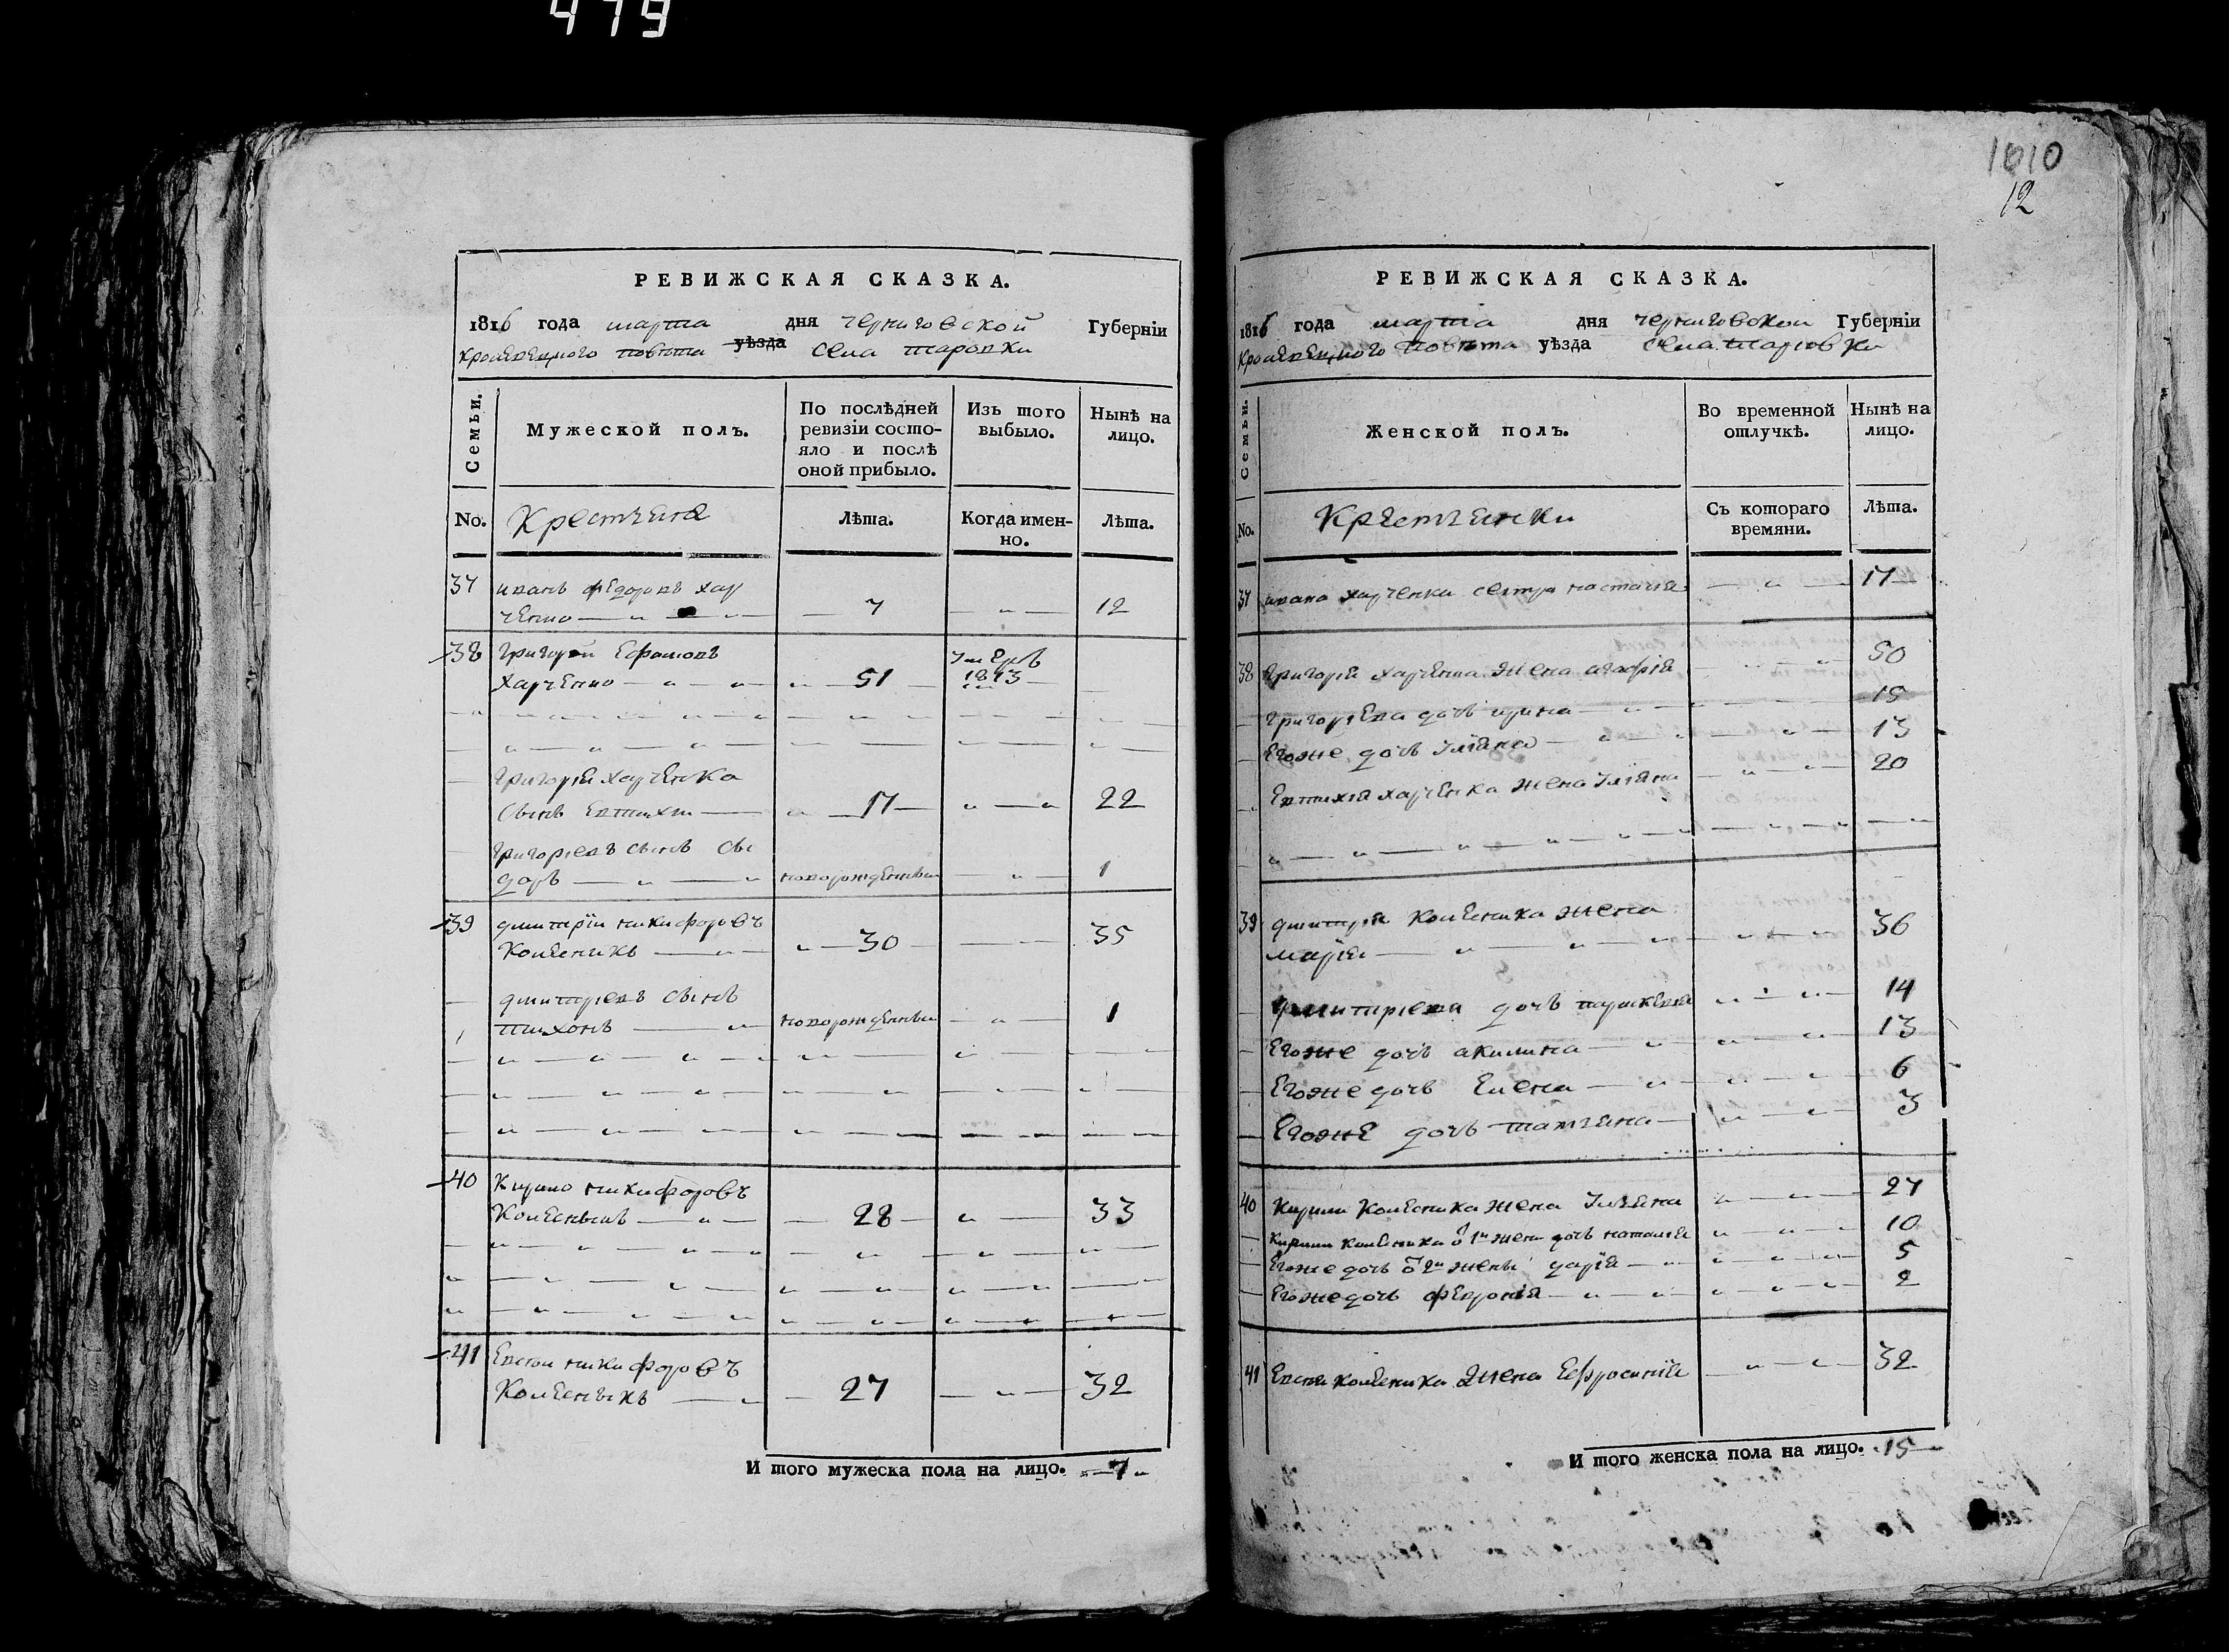 479
1010
12
РЕВИЖСКАЯ СКАЗКА.
1816 года марта дня Черниговской Губерніи
Кролевецкого повѣта уѣзда села
Семьи.
Мужеской полъ.
По послѣдней
ревизіи состо-
яло и послѣ
оной прибыло.
Изъ того
выбыло.
Нынѣ на
лицо.
No.
Крестьяне
Лѣта.
Когда имен-
но.
Лѣта.
37 иванъ федоровъ хар
ченко 7 12
38 Григорей Ефимовъ умеръ
харченко 51 1813
Григорія харченка
сынъ Евтихи 17 22
Григоріевъ сынъ сы
доръ новорожденный 1
39 дмитрій никифоровъ
Колесникъ 30 35
дмитріевъ сынъ
тихонъ новорожденный 1
40 Кирило никифоровъ
Колесныкъ 28 33
41 никифоровъ
Колесныкъ 27 32
И того мужеска пола на лицо. 7
РЕВИЖСКАЯ СКАЗКА.
1816 года марта дня Черниговской Губерніи
Кролевецкого повѣта уѣзда села
Семьи.
Женской полъ.
Во временной
отлучкѣ.
Нынѣ на
лицо.
No.
Крестьянки
Съ котораго
времяни.
Лѣта.
37 ивана харченка сестра настасія 17
38 Григорія харченка жена агафія 50
Григоріева дочь ирина 15
Егоже дочь уліяна 13
Евтихія харченка жена уліяна 20
39 дмитрія Колесника жена
марія 36
дмитріева дочь параскевия 14
Егоже дочь акилина 13
Егоже дочь Елена 6
Егоже дочь татіяна 3
40 Кирила Колесника жена Уліяна 27
Кирила колесника 1й жени дочь наталія 10
Егоже дочь 2й жены дарія 5
Егоже дочь феврония 2
41 колесника жена Ефросинія 32
И того женска пола на лицо. 15